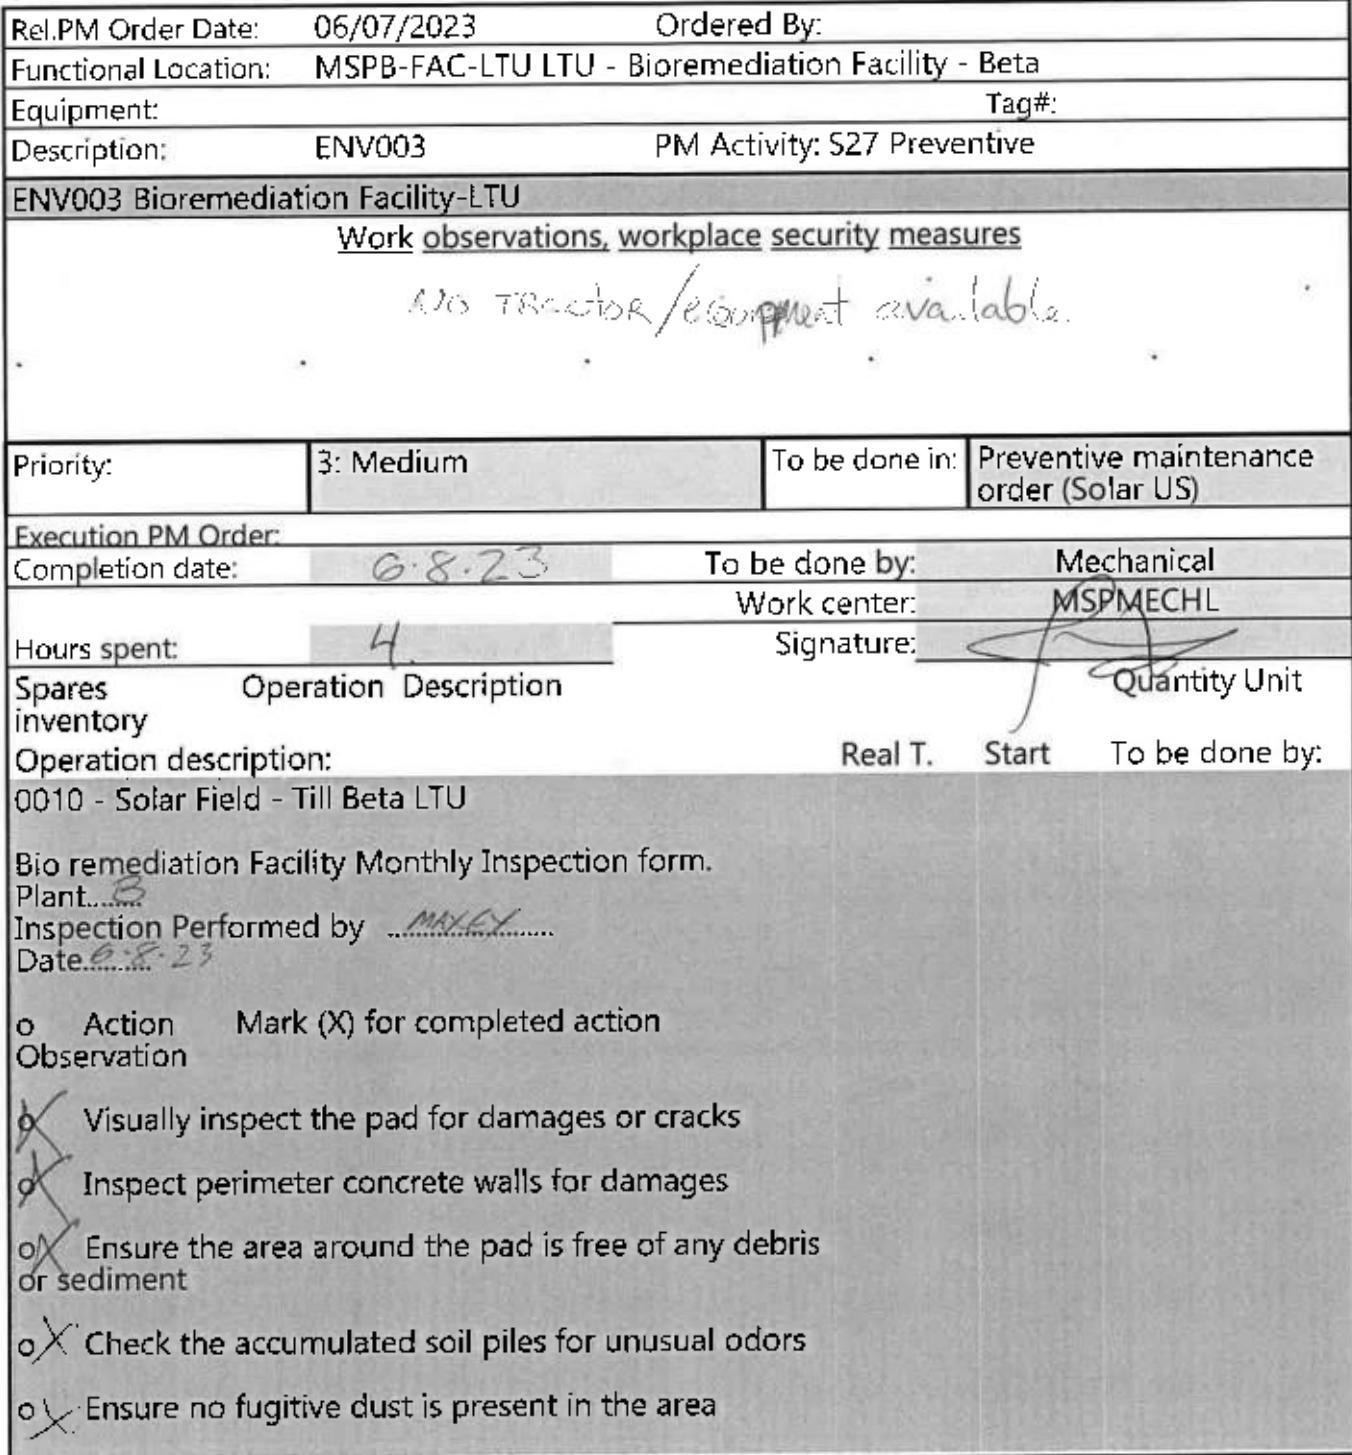 Rel.PM Order Date: 06/07/2023 Ordered By:
Functional Location: MSPB-FAC-LTU LTU - Bioremediation Facility - Beta
Equipment: Tag#:
Description: ENV003 PM Activity: S27 Preventive
ENV003 Bioremediation Facility-LTU
Work observations, workplace security measures
NO TRactoR/equipment available.
Priority: 3: Medium To be done in: Preventive maintenance
order (Solar US)
Execution PM Order:
Completion date: 6.8.23 To be done by: Mechanical
Work center: MSPMECHL
Hours spent: 4 Signature:
Spares Operation Description Quantity Unit
inventory
Operation description: Real T. Start To be done by:
0010 - Solar Field - Till Beta LTU
Bio remediation Facility Monthly Inspection form.
Plant........ B
Inspection Performed by ... MAXEY ...
Date.......... 6.8.23
o Action Mark (X) for completed action
Observation
o X Visually inspect the pad for damages or cracks
o X Inspect perimeter concrete walls for damages
o X Ensure the area around the pad is free of any debris
or sediment
o X Check the accumulated soil piles for unusual odors
o X Ensure no fugitive dust is present in the area